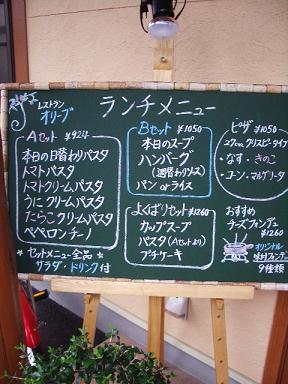 レストラン
オリーブ
ランチメニュー
Aセット ¥924
本日の日替わりパスタ
トマトパスタ
トマトクリームパスタ
うにクリームパスタ
たらこクリームパスタ
ペペロンチーノ
* セットメニュー全品 *
サラダ・ドリンク付
Bセット ¥1050
本日のスープ
ハンバーグ
(週替わりソース)
パン or ライス
よくばりセット ¥1260
カップスープ
パスタ(Aセットより)
プチケーキ
ピザ ¥1050
27cm クリスピータイプ
・なす・きのこ
・コーン・マルゲリータ
おすすめ
チーズフォンデュ
¥1260
オリジナル
9種類